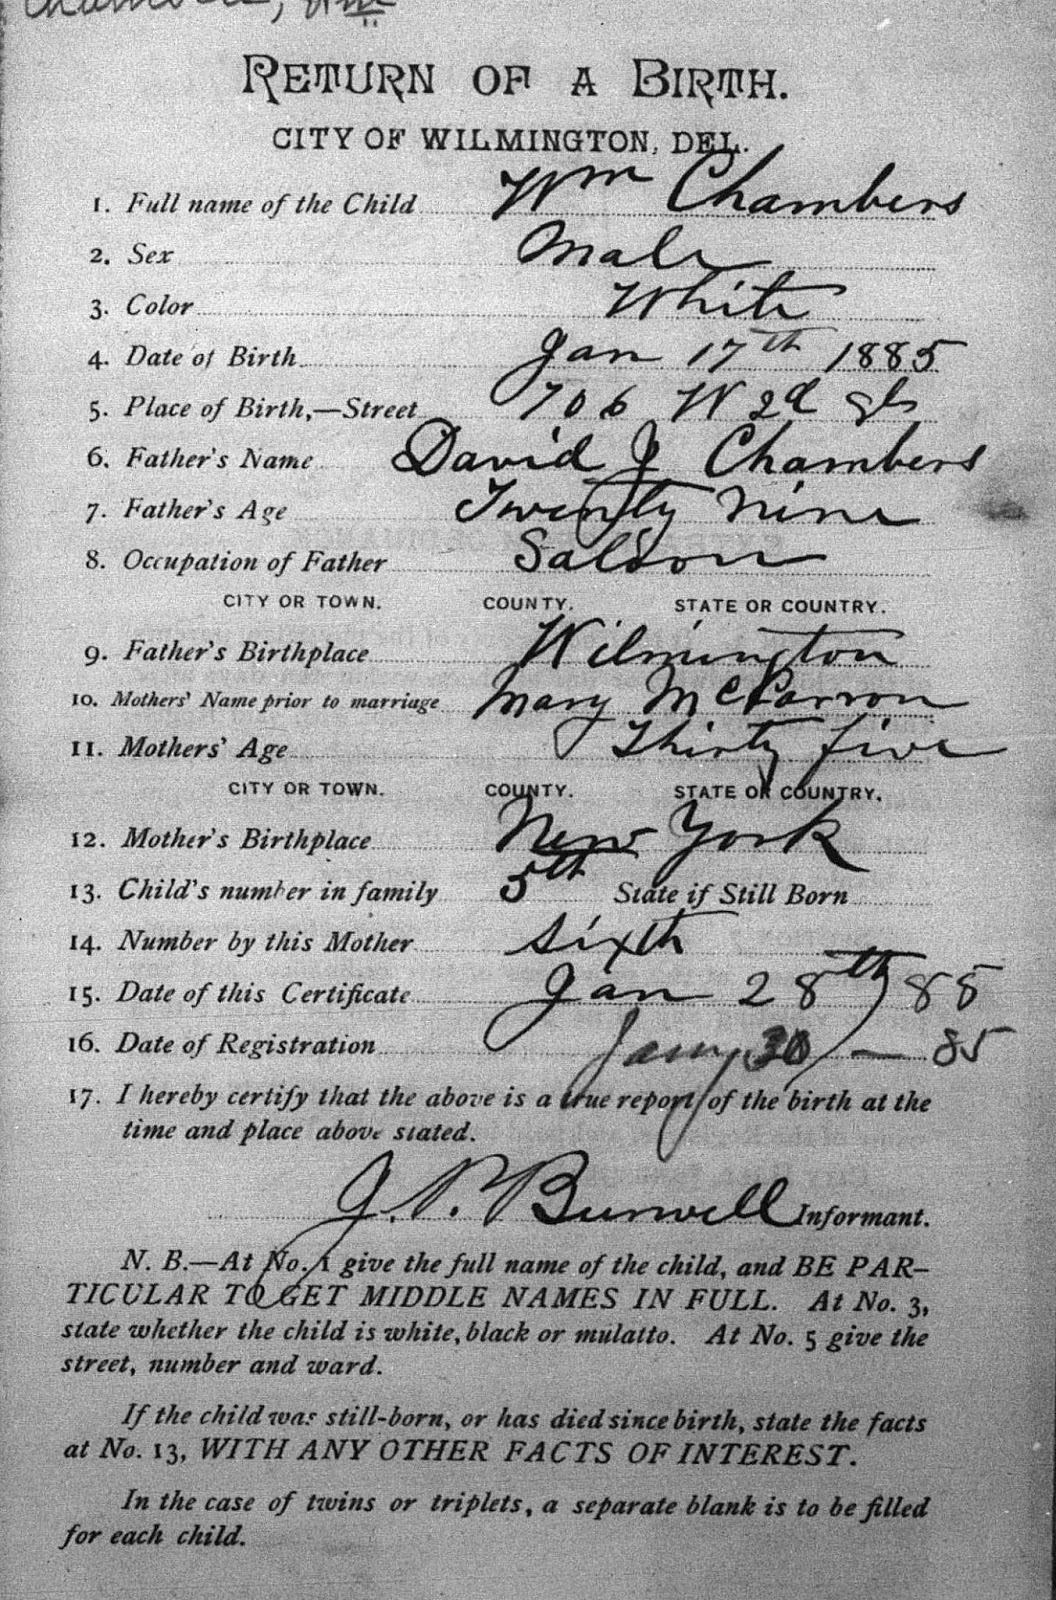 Chambers, Wm
RETURN OF A BIRTH.
CITY OF WILMINGTON, DEL.
1. Full name of the Child Wm Chambers
2. Sex Male
3. Color White
4. Date of Birth Jan 17th 1885
5. Place of Birth,—Street 706 W 2d St
6. Father's Name David J Chambers
7. Father's Age Twenty Nine
8. Occupation of Father Saloon
CITY OR TOWN. COUNTY. STATE OR COUNTRY.
9. Father's Birthplace Wilmington
10. Mothers' Name prior to marriage Mary McParron
11. Mothers' Age Thirty five
CITY OR TOWN. COUNTY. STATE OR COUNTRY.
12. Mother's Birthplace New York
13. Child's number in family 5th State if Still Born
14. Number by this Mother Sixth
15. Date of this Certificate Jan 28th 85
16. Date of Registration Jany 30 — 85
17. I hereby certify that the above is a true report of the birth at the
time and place above stated.
J. P. Burwell Informant.
N. B.—At No. 1 give the full name of the child, and BE PAR-
TICULAR TO GET MIDDLE NAMES IN FULL. At No. 3,
state whether the child is white, black or mulatto. At No. 5 give the
street, number and ward.
If the child was still-born, or has died since birth, state the facts
at No. 13, WITH ANY OTHER FACTS OF INTEREST.
In the case of twins or triplets, a separate blank is to be filled
for each child.